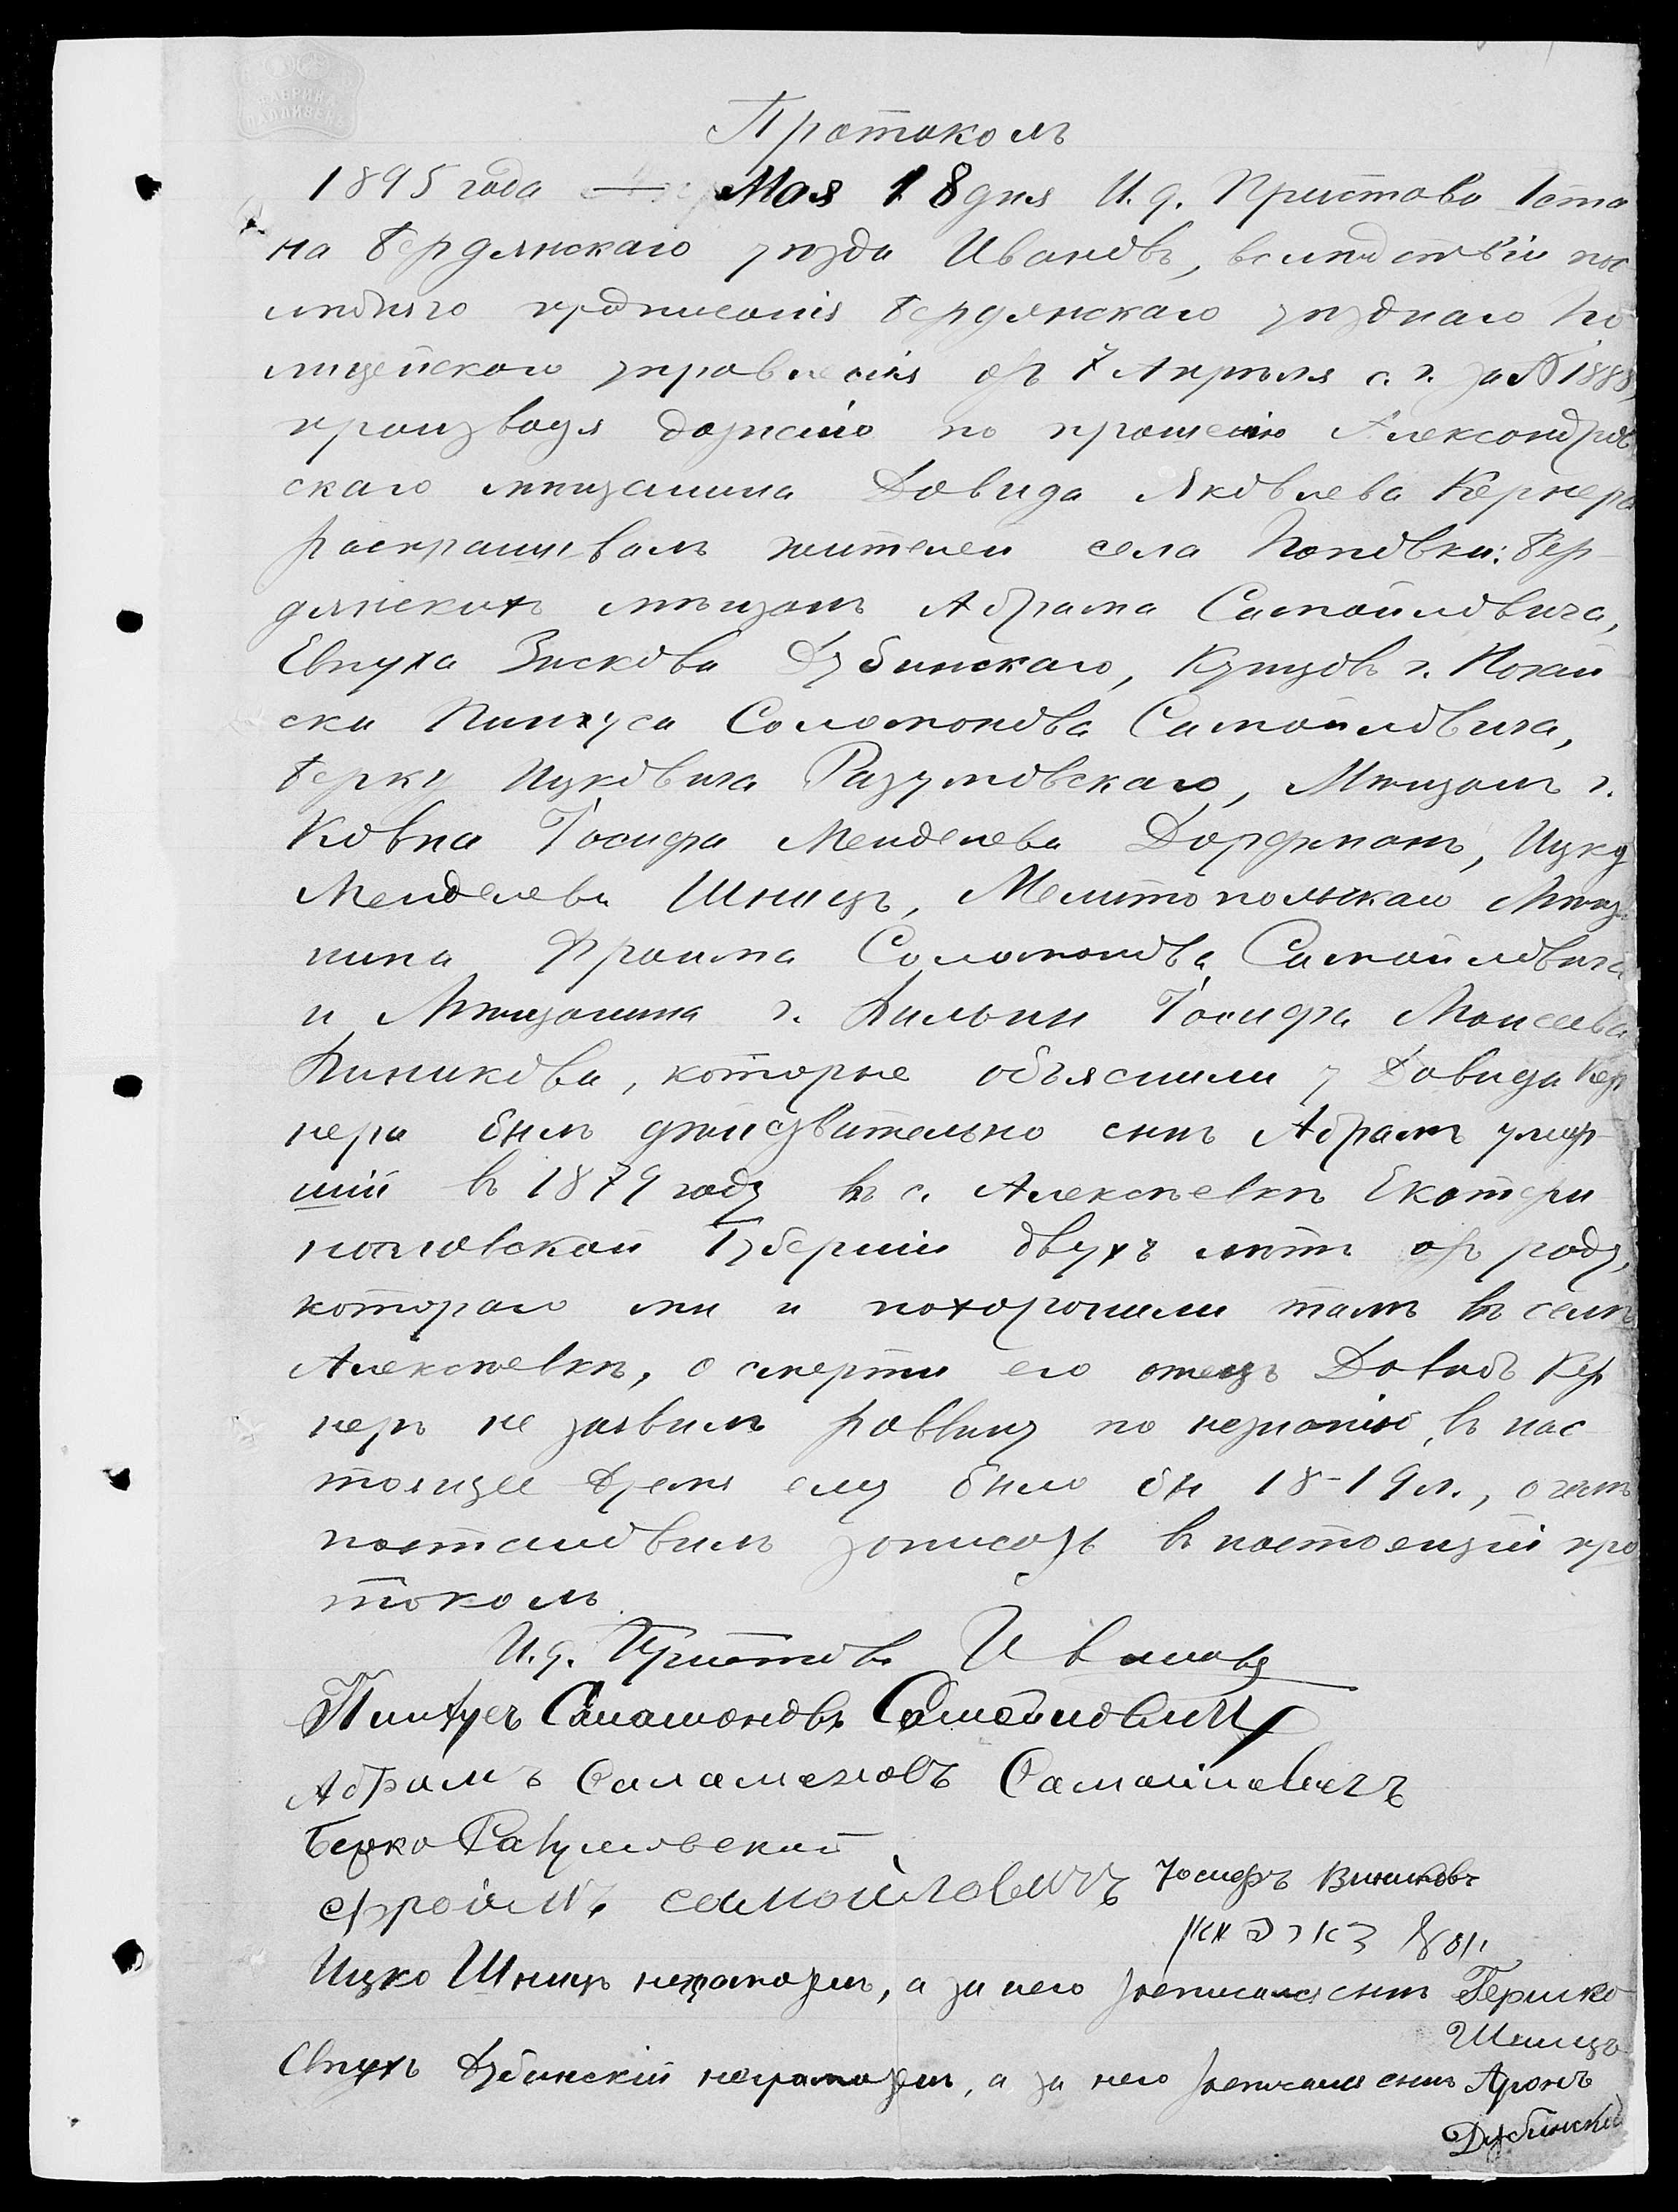 Протоколъ
1895 года Мая 18 дня И. д. Пристава 1 ста
на Бердянскаго уѣзда Ивановъ, вслѣдствіи пос
лѣдняго предписанія Бердянскаго уѣзднаго По
лицейскаго управленія отъ 7 Апрѣля с. г. за № 1888,
производя дознаніе по прошенію Александров
скаго мѣщанина Довида Яковлева Кернера
распрашивалъ жителей села Поповки: Бер
дянскихъ мѣщанъ Абрама Самойловича,
Евнуха Зискова Дубинскаго, Купцовъ г. Ногай
ска Пинхуса Соломонова Самойловича,
Берку Ицковича Разумовскаго, Мѣщанъ г.
Ковна Іосифа Менделева Дорфманъ, Ицку
Менделева Шницъ, Мелитопольскаго Мѣща
нина Фроима Соломонова Самойловича
и Мѣщанина г. Вильны Іосифа Моисеева
Виникова, которые объяснили у Довида Кер
нера былъ дѣйствительно сынъ Абрамъ умер
шій въ 1879 году въ с. Алексѣевкѣ Екатери
нославской Губерніи двухъ лѣтъ отъ роду,
котораго мы и похоронили тамъ въ селѣ
Алексѣевкѣ, о смерти его отецъ Довидъ Кер
неръ не заявилъ раввину по незнанію, въ нас
тоящее время ему было бы 18-19 л., о чемъ
постановилъ записать въ настоящій про
токолъ.
И. д. Пристава Ивановъ
Пинхусъ Саламоновъ Самойловичъ
Абрамъ Саламоновъ Самойловичъ
Берко Разумовский
Фроимъ Самойловичъ Іосифъ Виниковъ
Ицко Шницъ неграмотенъ, а за него росписался сынъ Гершко
Шницъ
Евнухъ Дубинскій неграмотенъ, а за него росписался сынъ Аронъ
Дубинскій